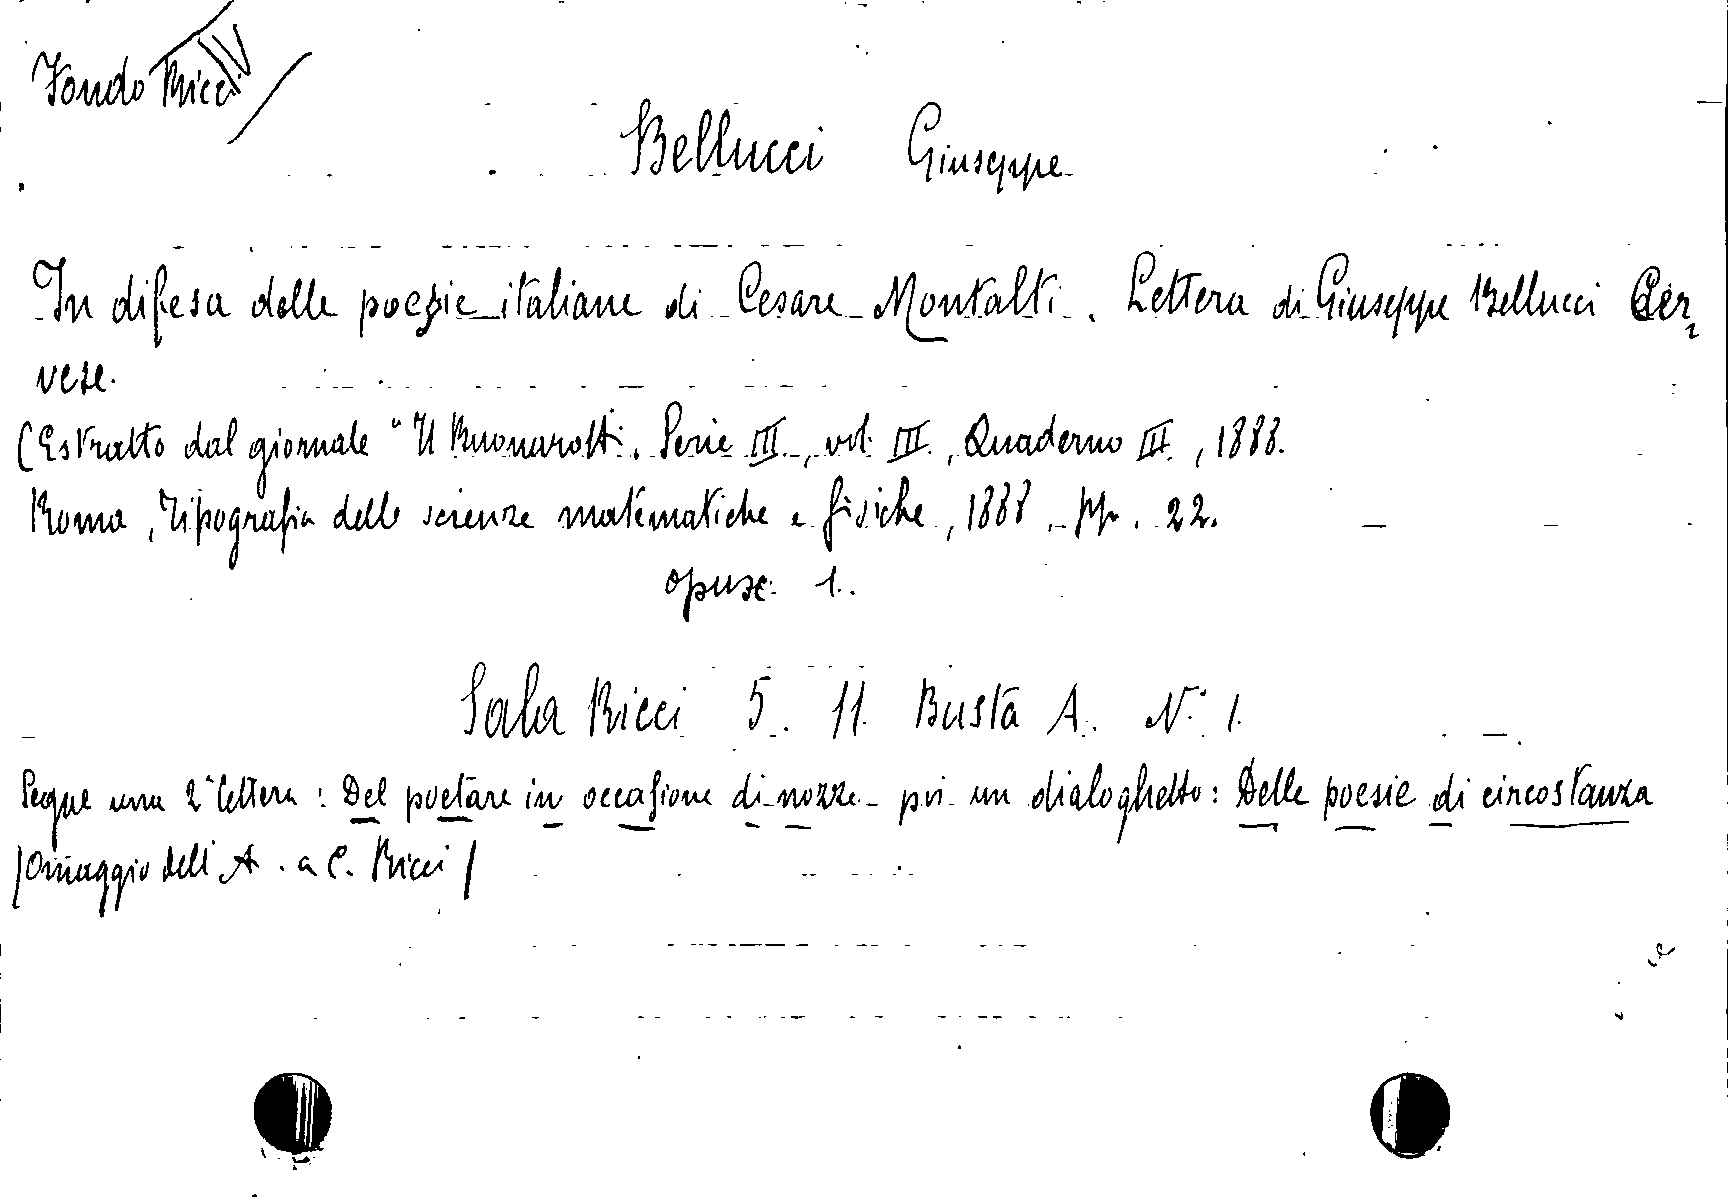 Fondo Ricci
Bellucci Giuseppe
In difesa delle poesie italiane di Cesare Montalti. Lettera di Giuseppe Bellucci Cer,
vese.
(Estratto dal giornale "Il Buonarotti. Serie III., vol. III., Quaderno III., 1888.
Roma, Tipografia delle scienze matematiche e fisiche, 1888. pp. 22.
opusc. 1.
Sala Ricci 5. 11. Busta A. N. 1.
Segue una 2ª lettera: Del poetare in occasione di nozze poi un dialoghetto: Delle poesie di circostanza
/Omaggio dell'A. a C. Ricci/